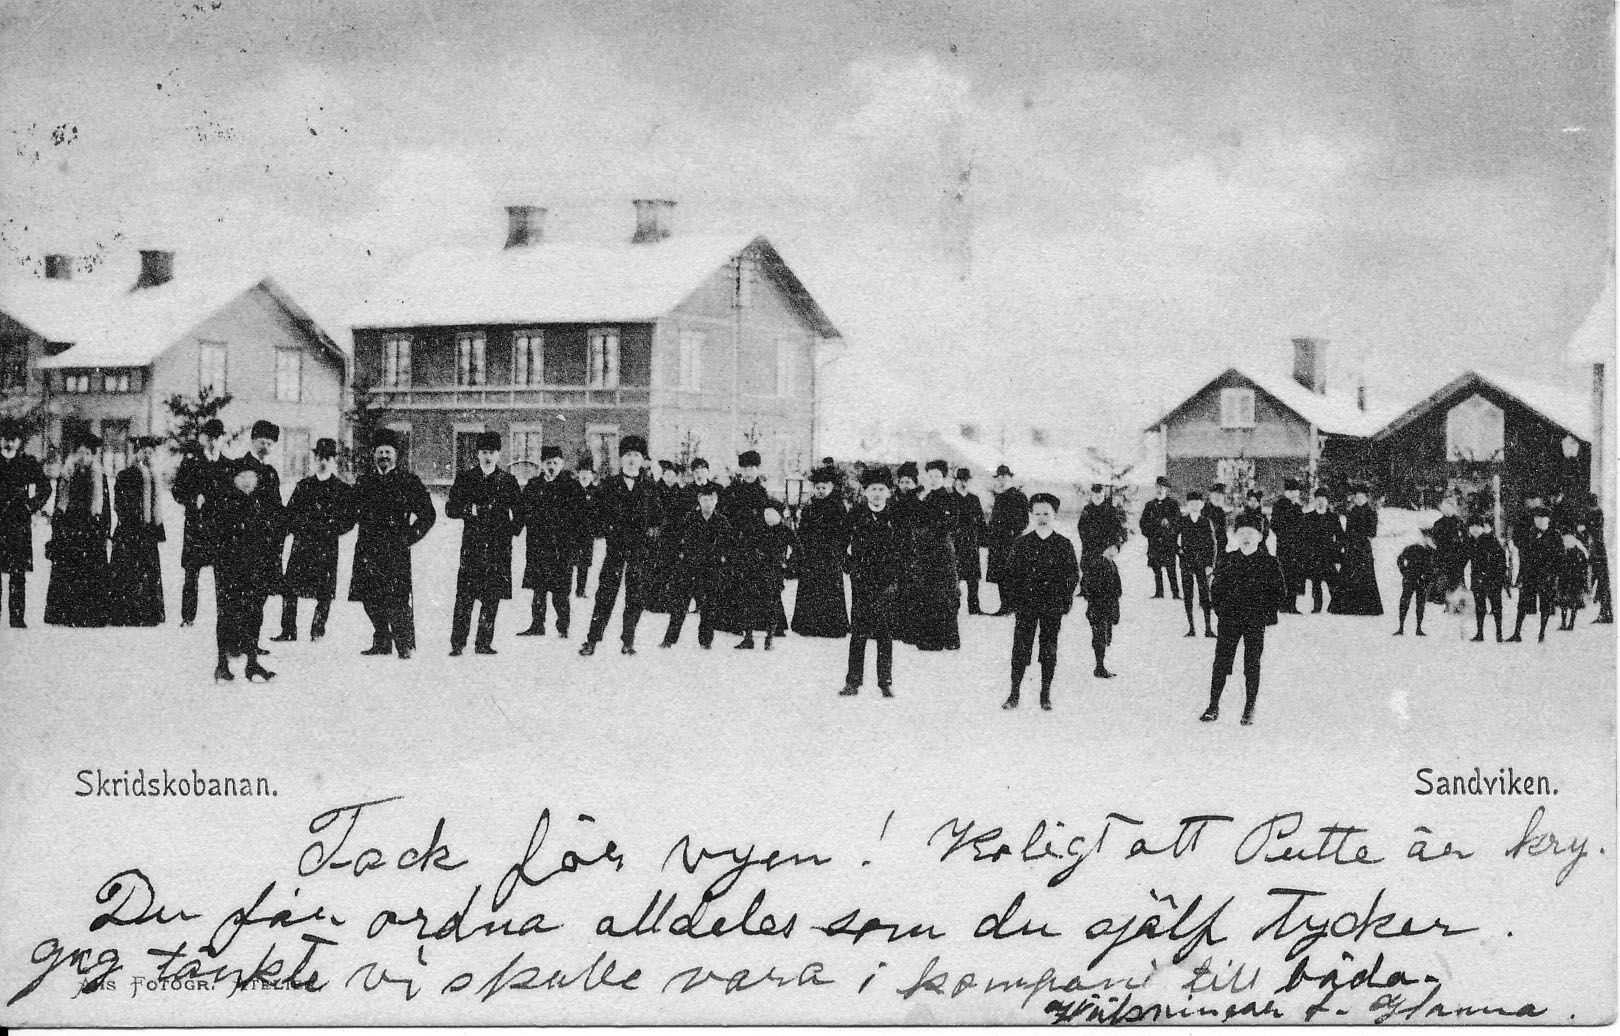 Skridskobanan. Sandviken.
Tack för vyen! Roligt att Putte är kry.
Du får ordna alldeles som du själf tycker.
Jag tänkte vi skulle vara i kompani till båda.
Fotogr. Ateljé
Hälsningar f. Hanna.